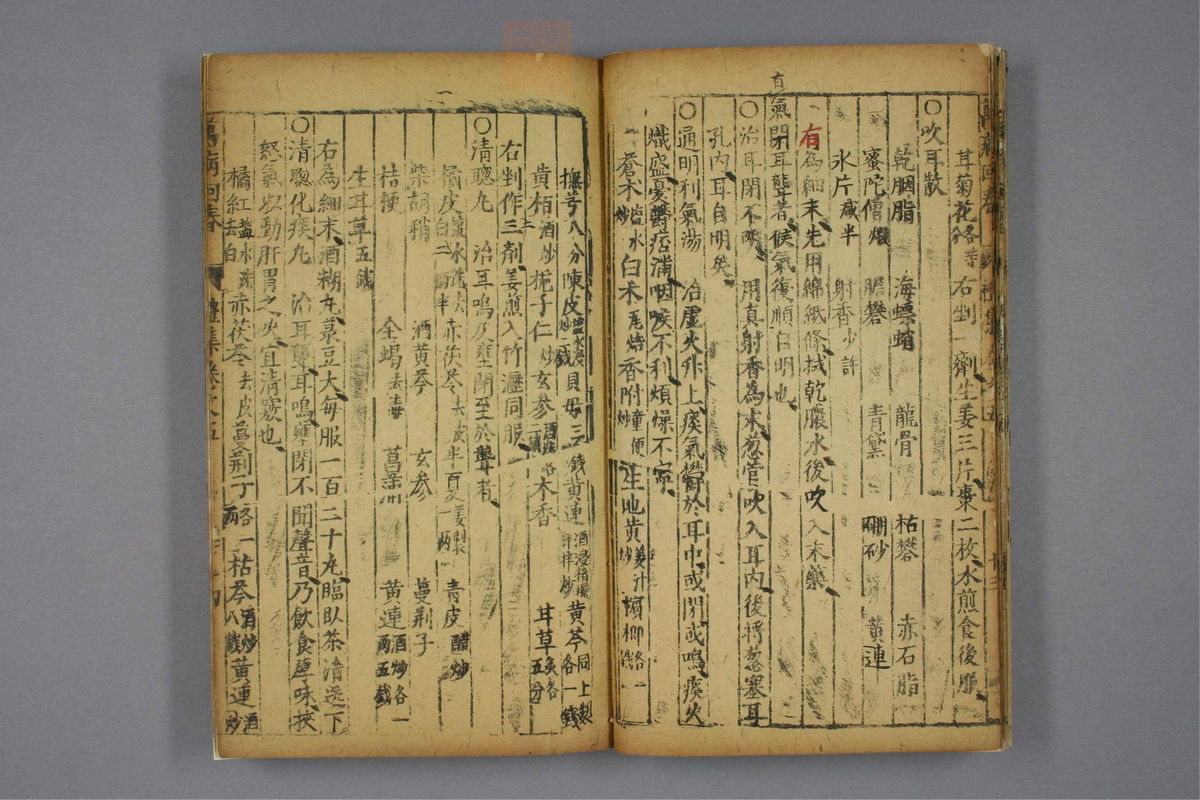 耳菊花各等右剉一劑生姜三片棗二枚水煎食後服
〇吹耳散
乾胭脂 海螵蛸 龍骨 枯礬 赤石脂
蜜陀僧煆 膽礬 青黛 硼砂 黃連
氷片减半 射香少許
右為細末先用綿紙條拭乾膿水後吹入末藥
有氣閉耳聾者候氣復順自明也
〇治耳閉不明 用真射香為末葱管吹入耳内後將葱塞耳
孔内耳自明矣
〇通明利氣湯 治虛火外上痰氣鬱於耳中或閉或鳴痰火
熾盛憂鬱痞滿咽喉不利煩燥不寧
蒼朮炒 白朮 香附童便炒 生地黃姜汁炒 檳榔各一
撫芎八分陳皮塩水浸炒一錢貝母三錢黃連酒浸猪膽汁拌炒黃芩同上製各一錢
黃栢酒炒 梔子仁炒玄參酒洗二錢各木香 耳草炙各五分
右剉作三劑姜煎入竹瀝同服
〇清聰丸 治耳鳴及壅閉至於聾者
橘皮塩水洗去白二兩半赤茯苓去皮半夏姜製一兩 青皮醋炒
柴胡稍 酒黃芩 玄參 蔓荊子
桔梗 全蝎去毒 菖蒲 黃連酒炒各一兩五錢
生耳草五錢
右為細末酒糊丸菉豆大每服一百二十丸臨臥茶清送下
〇清聰化痰丸 治耳聾耳鳴壅閉不聞聲音乃飲食厚味挾
怒氣以動肝胃之火宜清竅也
橘紅塩水洗去白赤茯苓去皮蔓荊子各一兩枯芩酒炒八錢黃連酒炒
萬病回春